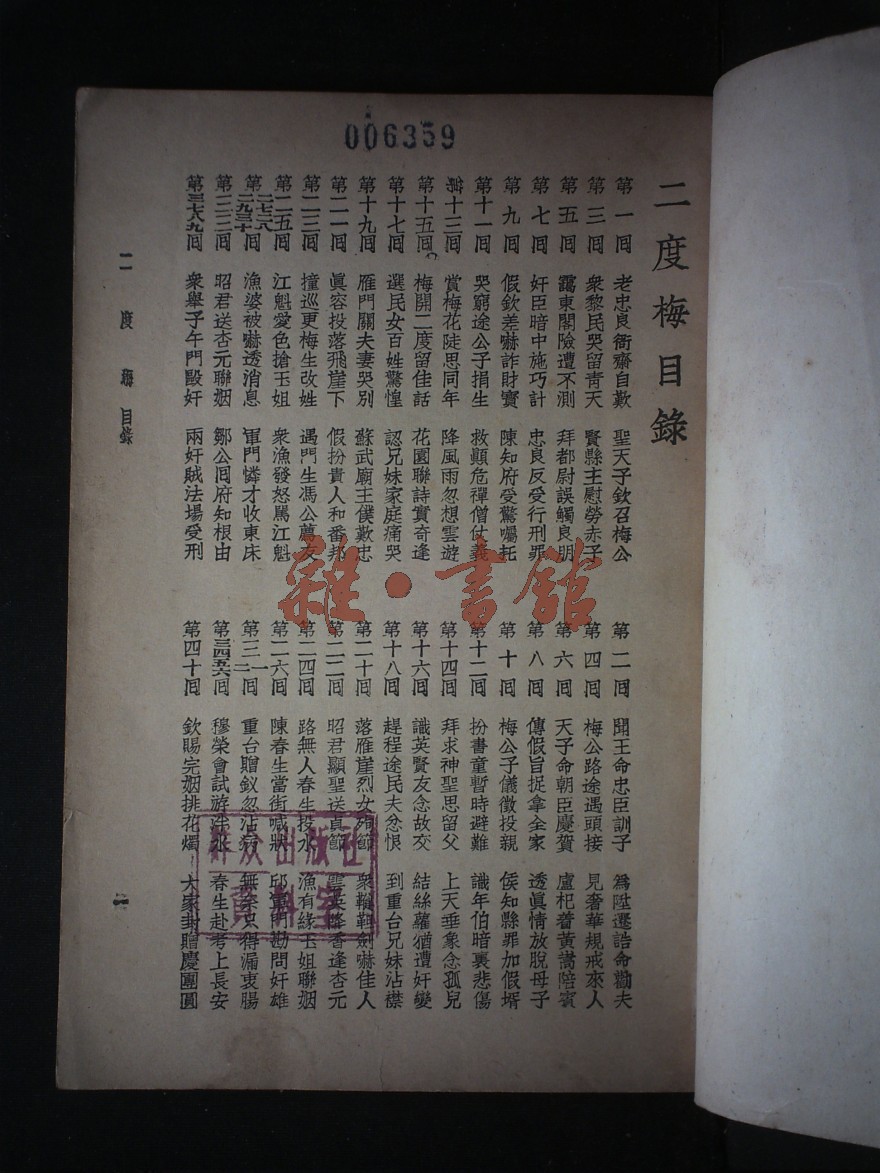 006359
二度梅目錄
第一回 老忠良衙齋自歎 聖天子欽召梅公
第二回 聞王命忠臣訓子 為陞遷誥命勸夫
第三回 衆黎民哭留靑天 賢縣主慰勞赤子
第四回 梅公路途遇頭接 見奢華規戒來人
第五回 靄東閣險遭不測 拜都尉誤觸良朋
第六回 天子命朝臣慶賀 盧杞着黃嵩陪賓
第七回 奸臣暗中施巧計 忠良反受行刑罪
第八回 傳假旨捉拿全家 透眞情放脫母子
第九回 假欽差嚇詐財寶 陳知府受驚囑托
第十回 梅公子儀徵投親 侯知縣罪加假壻
第十一回 哭窮途公子捐生 救顚危禪僧仗義
第十二回 扮書童暫時避難 識年伯暗裏悲傷
第十三回 賞梅花陡思同年 降風雨忽想雲遊
第十四回 拜求神聖思留父 上天垂象念孤兒
第十五回 梅開二度留佳話 花園聯詩實奇逢
第十六回 識英賢友念故交 結絲蘿猶遭奸變
第十七回 選民女百姓驚惶 認兄妹家庭痛哭
第十八回 趕程途民夫忿恨 到重台兄妹沾襟
第十九回 雁門關夫妻哭別 蘇武廟主僕歎忠
第二十回 落雁崖烈女殉節 衆韃靼劍嚇佳人
第二一回 眞容投落飛崖下 假扮貴人和番邦
第二二回 昭君顯聖送貞節 雲英 香逢杏元
第二三回 撞巡更梅生改姓 遇門生馮公薦友
第二四回 路無人春生投水 漁有緣玉姐聯姻
第二五回 江魁愛色搶玉姐 衆漁發怒罵江魁
第二六回 陳春生當街喊狀 邱軍門勘問奸雄
第二七二八二九三十回 漁婆被嚇透消息 軍門憐才收東床
第三一二回 重台贈釵忽沾病 無奈只得漏衷腸
第三三回 昭君送杏元聯姻 鄒公回府知根由
第三四五六回 穆榮會試游泮水 春生赴考上長安
第三七八九回 衆舉子午門毆奸 兩奸賊法場受刑
第四十回 欽賜完姻排花燭 大家封贈慶團圓
二度梅目錄
一
雜·書館
群众出版社
資料室